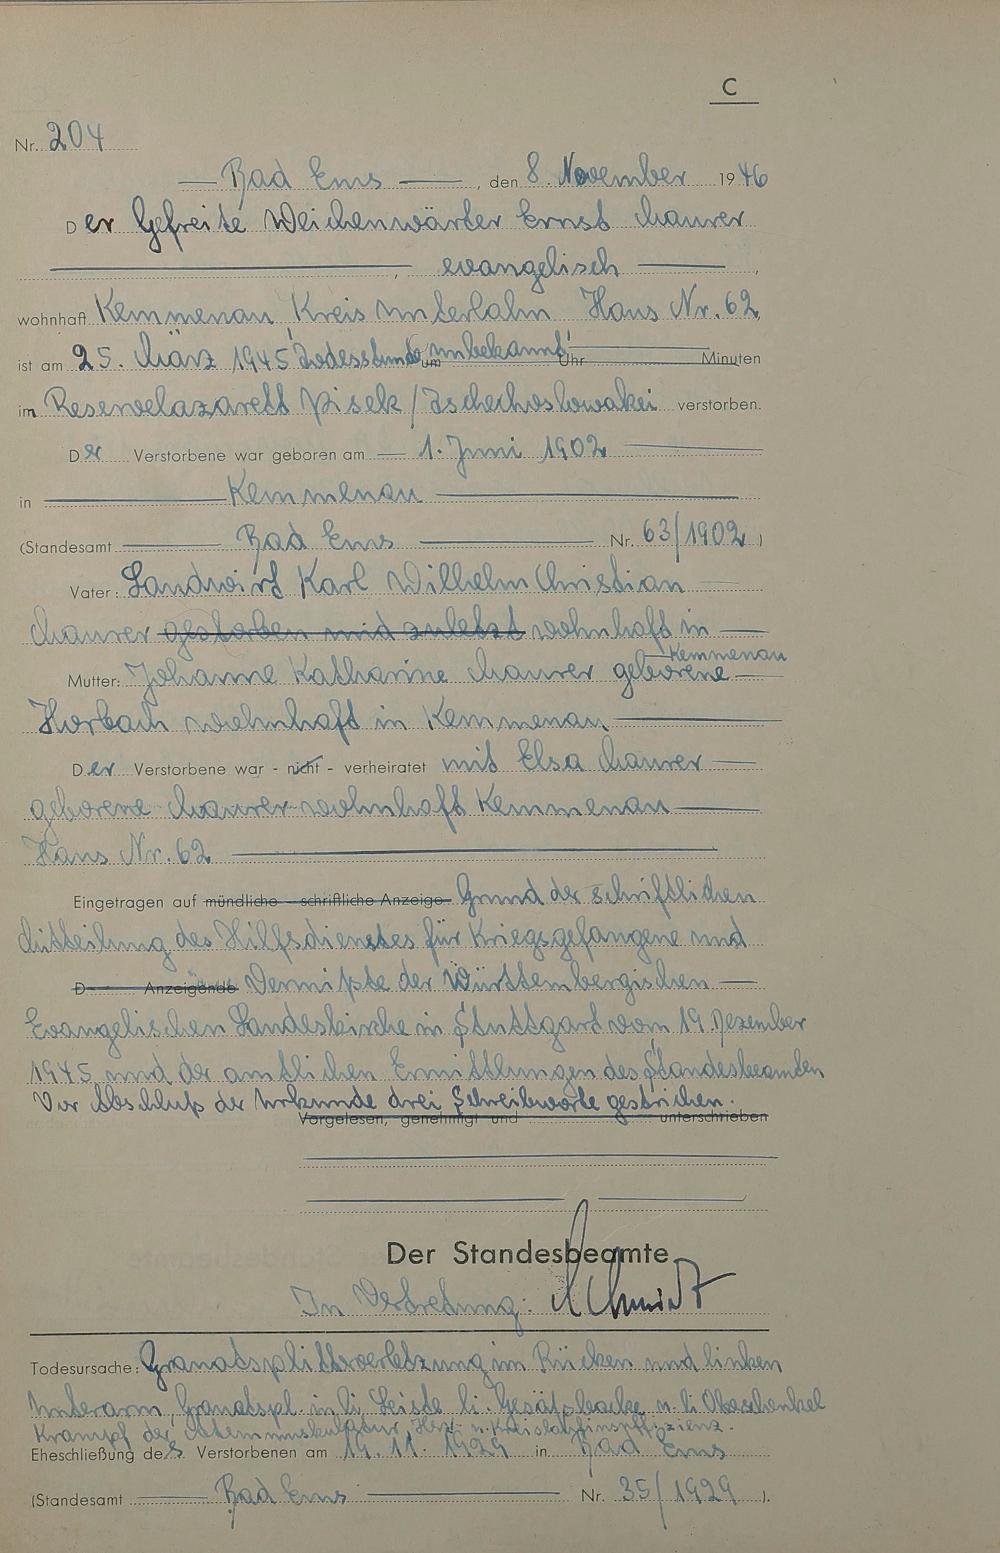 C
Nr. 204
Bad Ems, den 8. November 1946
Der Gefreite Weichenwärter Ernst Maurer
, evangelisch,
wohnhaft Kemmenau, Kreis Unterlahn Haus Nr. 62,
ist am 25. März 1945 Todesstunde unbekannt! um Uhr Minuten
im Reservelazarett Pisek/Tschechoslowakei verstorben.
Der Verstorbene war geboren am 1. Juni 1902
in Kemmenau
(Standesamt Bad Ems Nr. 63/1902)
Vater: Landwirt Karl Wilhelm Christian
Maurer gestorben und zuletzt wohnhaft in
Kemmenau
Mutter: Johanne Katharine Maurer geborene
Horbach wohnhaft in Kemmenau
Der Verstorbene war - nicht - verheiratet mit Elsa Maurer
geborene Maurer wohnhaft Kemmenau
Haus Nr. 62
Eingetragen auf mündliche - schriftliche Anzeige Grund der schriftlichen
Mitteilung des Hilfsdienstes für Kriegsgefangene und
D Anzeigende Vermißte der Württembergischen
Evangelischen Landeskirche in Stuttgart vom 19. Dezember
1945 und der amtlichen Ermittlungen des Standesbeamten
Vor Abschluß der Urkunde drei Schreibworte gestrichen.
Vorgelesen, genehmigt und unterschrieben
Der Standesbeamte
In Vertretung: Schmidt
Todesursache: Granatsplitterverletzung im Rücken und linken
Unterarm, Granatspl. in li. Leiste li. Gesäßbacke u. li Oberschenkel
Krampf der Atemmuskulatur, Herz- u. Kreislaufinsuffizienz.
Eheschließung des Verstorbenen am 19.11.1929 in Bad Ems
(Standesamt Bad Ems Nr. 35/1929).